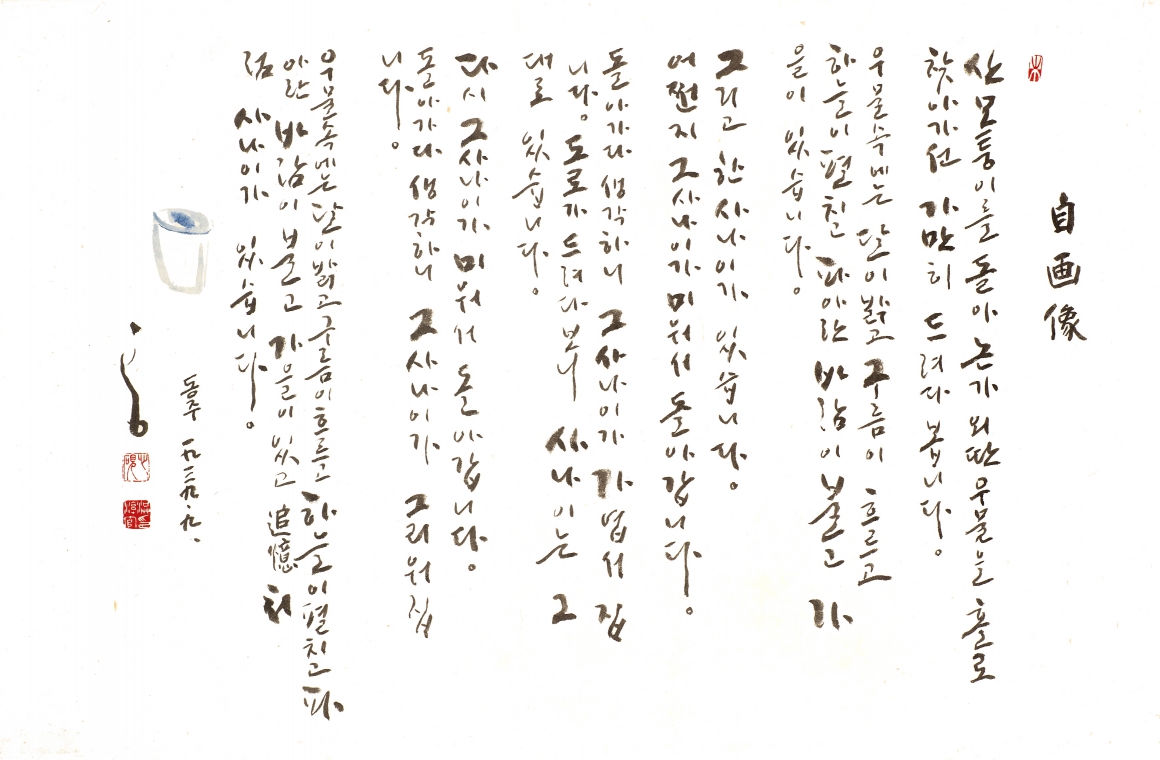 自画像
산모퉁이를 돌아 논가 외딴우물을 홀로
찾아가선 가만히 드려다 봅니다。
우물속에는 달이 밝고 구름이 흐르고
하늘이 펼친 파아란 바람이 불고 가
을이 있습니다。
그리고 한 사나이가 있습니다。
어쩐지 그사나이가 미워서 돌아갑니다。
돌아가다 생각하니 그사나이가 가엽서 집
니다。 도로가 드려다보니 사나이는 그
대로 있습니다。
다시 그사나이가 미워서 돌아갑니다。
돌아가다 생각하니 그사나이가 그리워집
니다。
우물속에는 달이밝고 구름이흐르고 하늘이 펼치고 파
아란 바람이 불고 가을이 있고 追憶처
럼 사나이가 있습니다。
동주 一九三九.九.